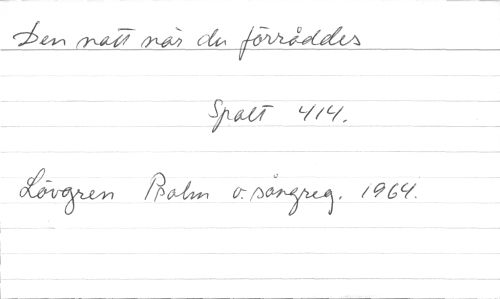 Den natt när du förråddes
Spalt 414.
Lövgren Psalm o. sångreg. 1964.